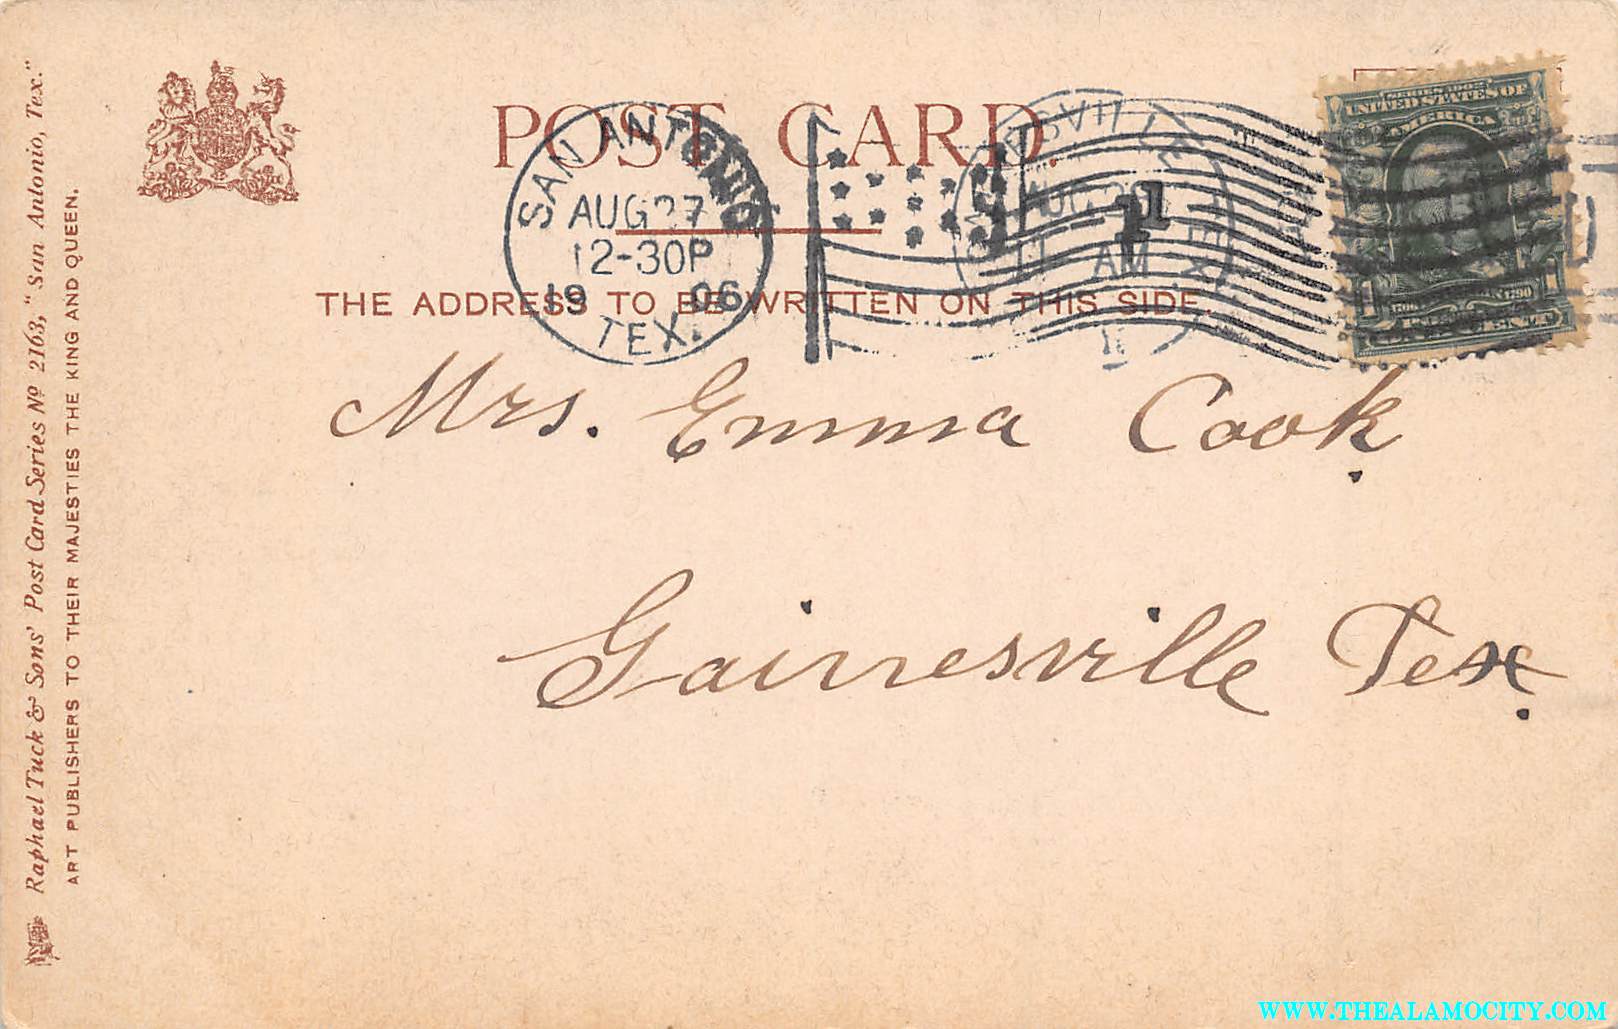 Raphael Tuck & Sons' Post Card Series Nº 2163, "San Antonio, Tex."
ART PUBLISHERS TO THEIR MAJESTIES THE KING AND QUEEN.
POST CARD.
SAN ANTONIO
AUG 27
12-30P
19 06
TEX.
AUG
11 AM
TEX
1
SERIES 1902
UNITED STATES OF
AMERICA
1 1790 1
ONE CENT
THE ADDRESS TO BE WRITTEN ON THIS SIDE.
Mrs. Emma Cook
Gainesville Tex.
WWW.THEALAMOCITY.COM